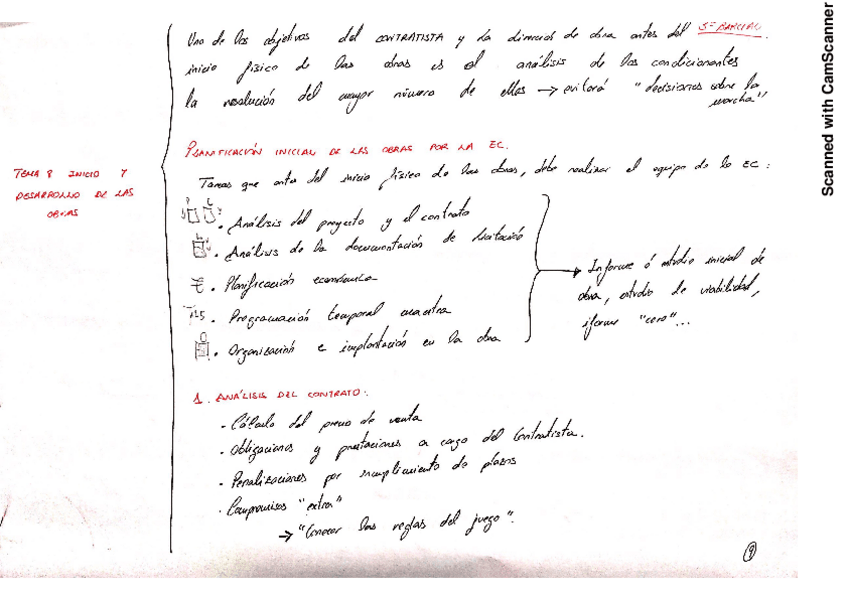 3er PARCIAL
Uno de los objetivos del CONTRATISTA y la dirección de obra antes del
inicio físico de las obras es el análisis de los condicionantes
la resolución del mayor número de ellos → evitará "decisiones sobre la
marcha"
PLANIFICACIÓN INICIAL DE LAS OBRAS POR LA EC.
TEMA 8 INICIO Y
DESARROLLO DE LAS
OBRAS
Tareas que antes del inicio físico de las obras, debe realizar el equipo de la EC:
• Análisis del proyecto y el contrato
• Análisis de la documentación de licitación
• Planificación económica
• Programación temporal maestra
• Organización e implantación en la obra
→ Informe ó estudio inicial de
obra, estudio de viabilidad,
iforme "cero"...
1. ANÁLISIS DEL CONTRATO:
- Cálculo del precio de venta
- Obligaciones y prestaciones a cargo del Contratista.
- Penalizaciones por incumplimiento de plazos
- Compromisos "extra"
→ "Conocer las reglas del juego".
9
Scanned with CamScanner